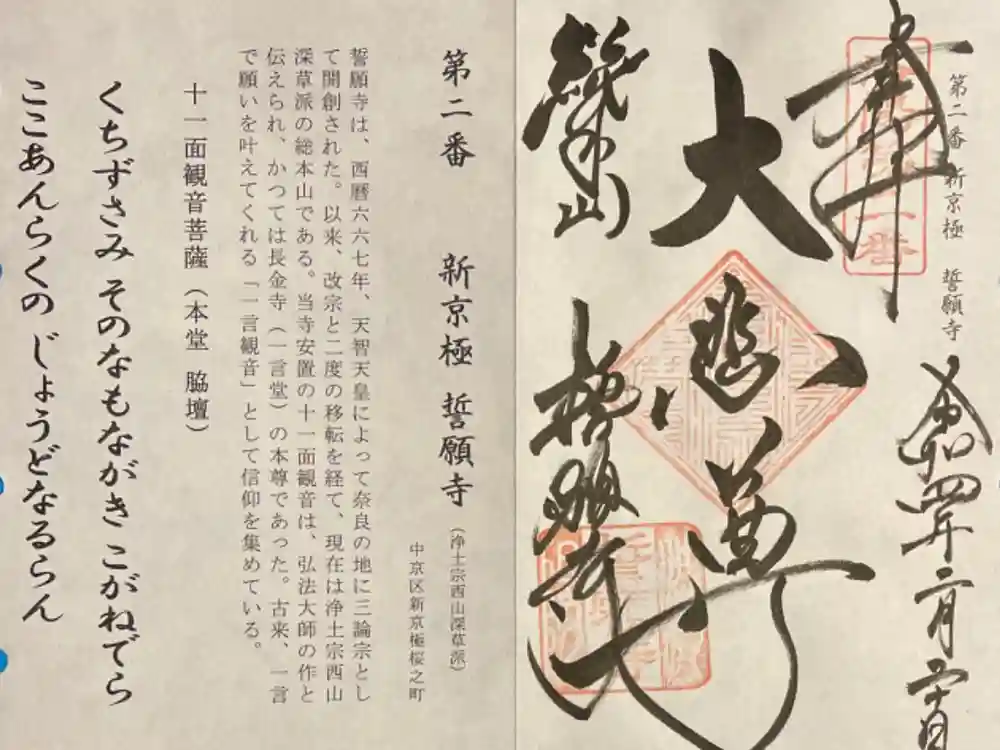 第二番 新京極 誓願寺
令和四年
奉拝
大悲尊
総本山 誓願寺
第二番 新京極 誓願寺(浄土宗西山深草派)
中京区新京極桜之町
誓願寺は、西暦六六七年、天智天皇によって奈良の地に三論宗とし
て開創された。以来、改宗と二度の移転を経て、現在は浄土宗西山
深草派の総本山である。当寺安置の十一面観音は、弘法大師の作と
伝えられ、かつては長金寺(一言堂)の本尊であった。古来、一言
で願いを叶えてくれる「一言観音」として信仰を集めている。
十一面観音菩薩(本堂 脇壇)
くちずさみ そのなもながき こがねでら
ここあんらくの じょうどなるらん